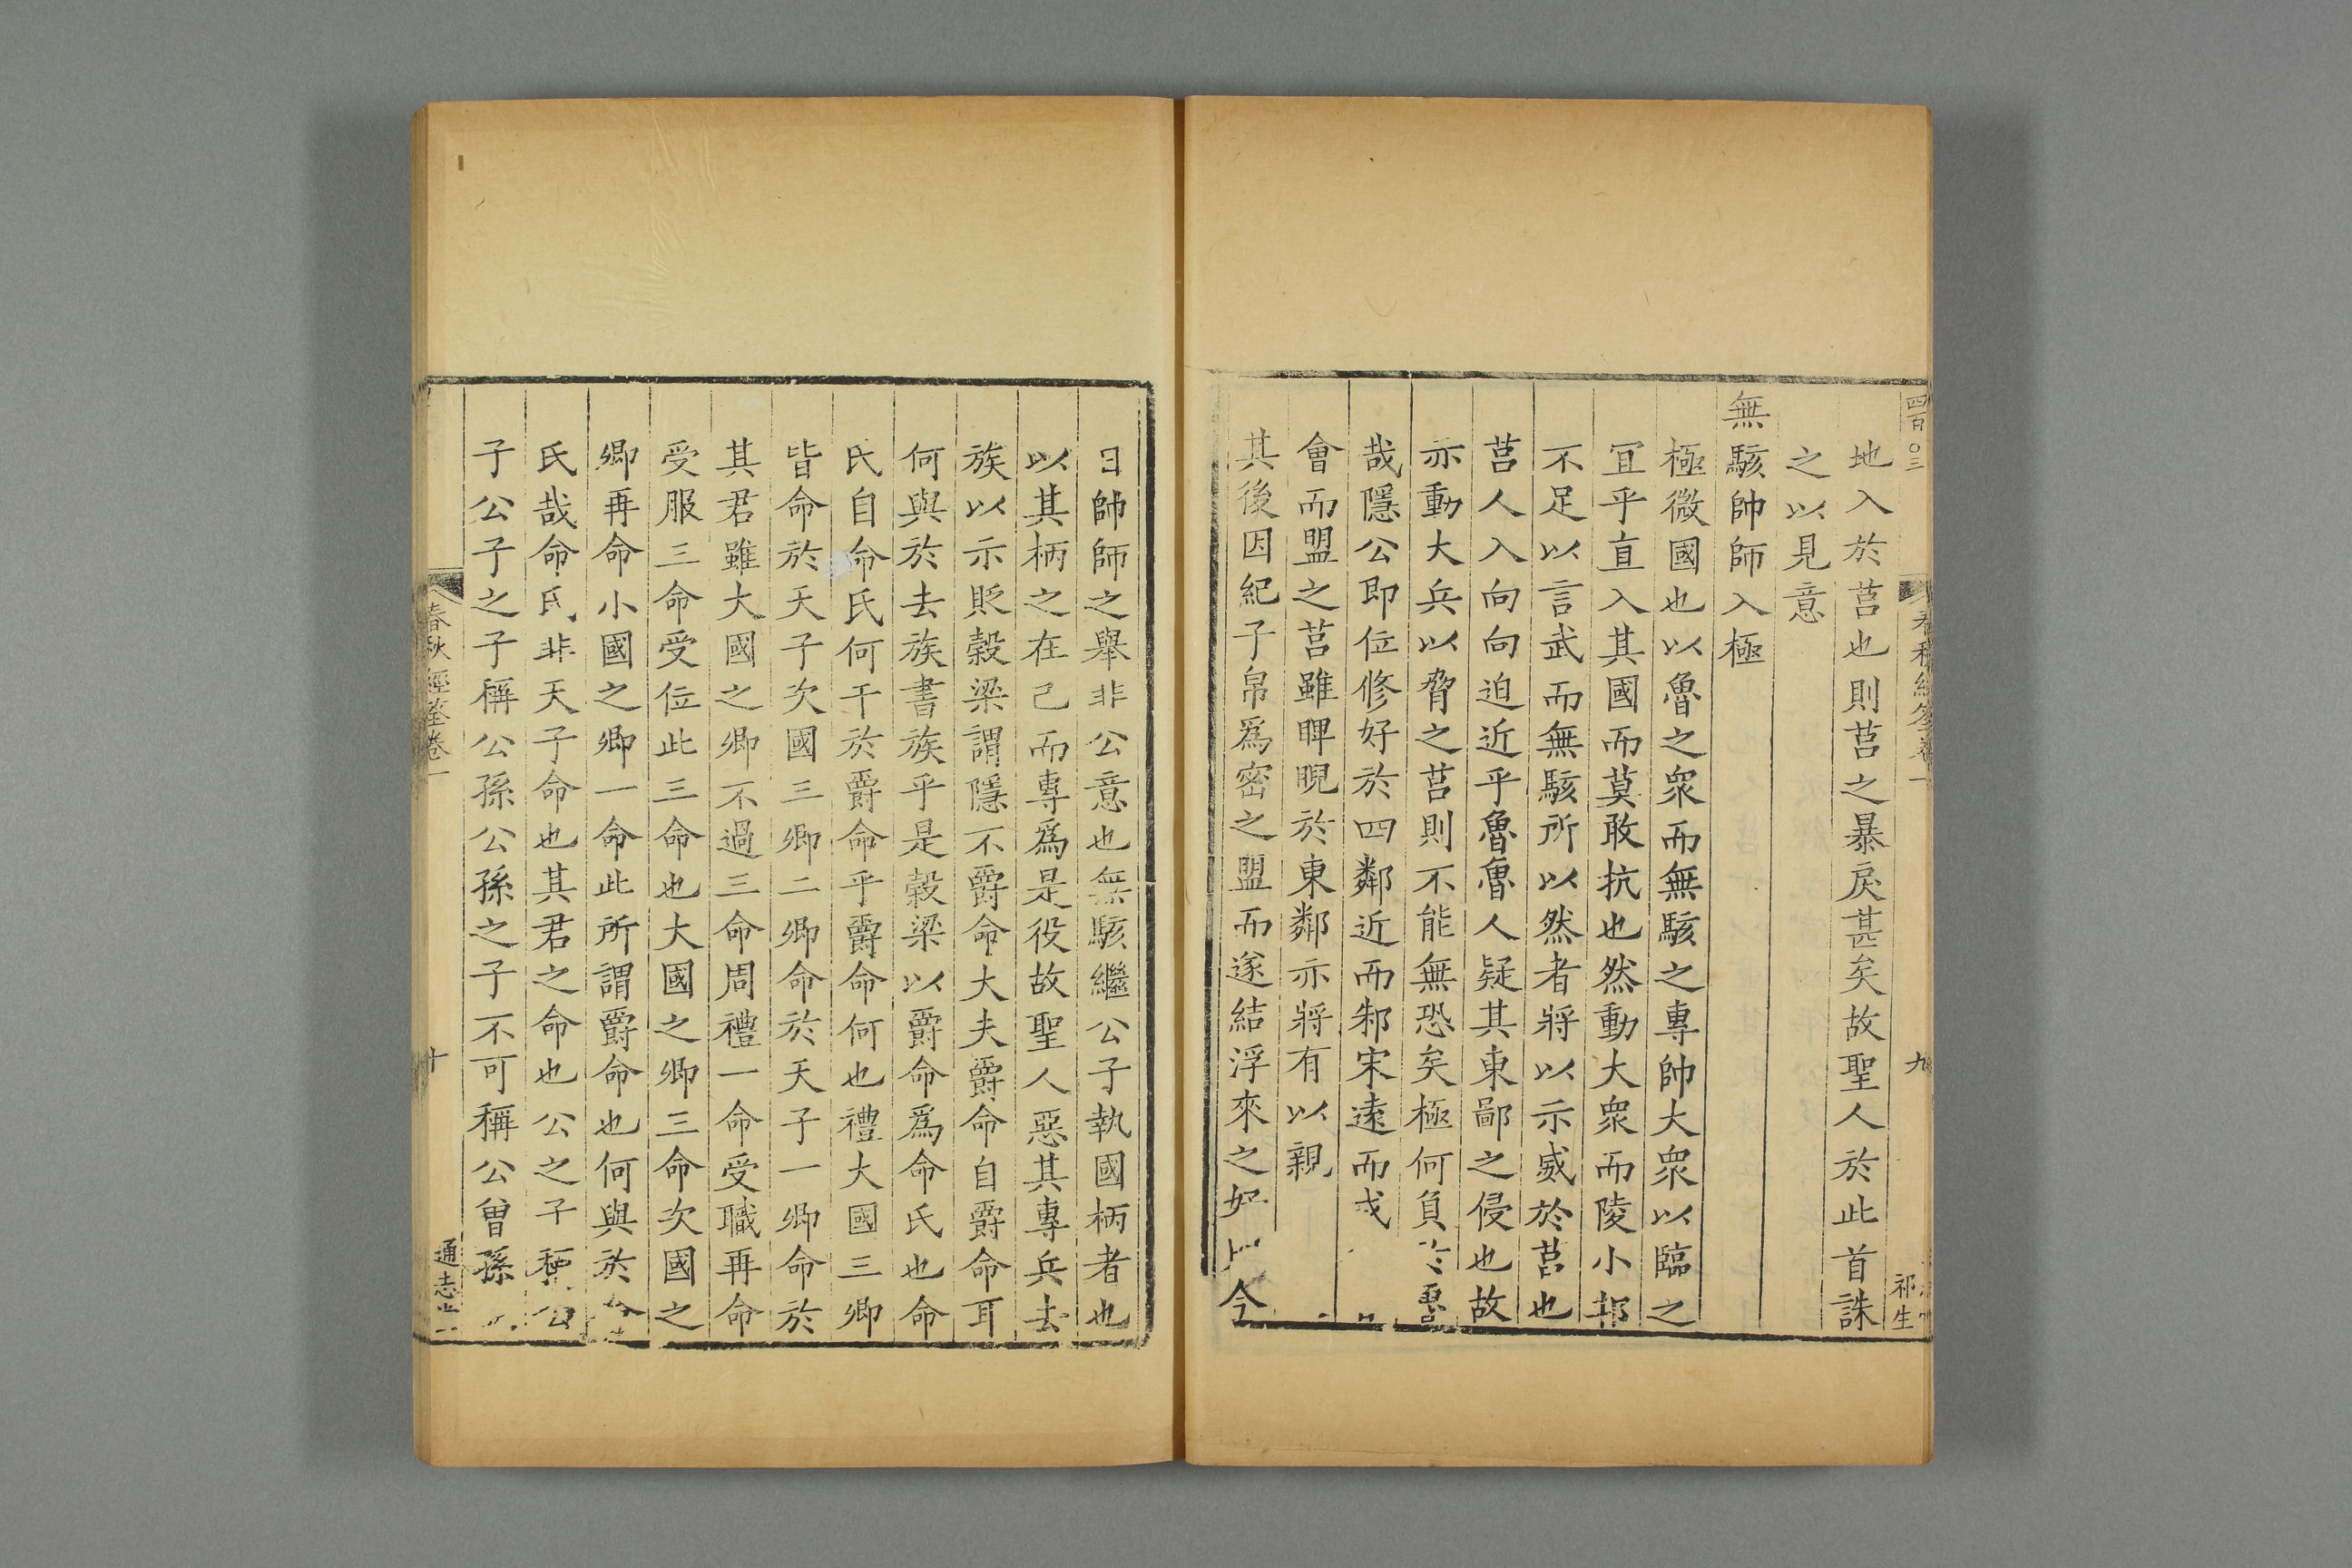 四百〇三
春秋經筌卷一
九
祁生
地入於莒也則莒之暴戾甚矣故聖人於此首誅
之以見意
無駭帥師入極
極微國也以魯之衆而無駭之專帥大衆以臨之
冝乎直入其國而莫敢抗也然動大衆而陵小邦
不足以言武而無駭所以然者將以示威於莒也
莒人入向向迫近乎魯魯人疑其東鄙之侵也故
亦動大兵以脅之莒則不能無恐矣極何負
哉隱公即位修好於四鄰近而邾宋遠而戎
會而盟之莒雖睥睨於東鄰亦將有以親
其後因紀子帛爲密之盟而遂結浮來之好 今
日帥師之舉非公意也無駭繼公子執國柄者也
以其柄之在己而專爲是役故聖人惡其專兵去
族以示貶榖梁謂隱不爵命大夫爵命自爵命耳
何與於去族書族乎是榖梁以爵命爲命氏也命
氏自命氏何干於爵命乎爵命何也禮大國三卿
皆命於天子次國三卿二卿命於天子一卿命於
其君雖大國之卿不過三命周禮一命受職再命
受服三命受位此三命也大國之卿三命次國之
卿再命小國之卿一命此所謂爵命也何與於
氏哉命氏非天子命也其君之命也公之子稱公
子公子之子稱公孫公孫之子不可稱公曾孫
春秋經筌卷一
十
通志堂